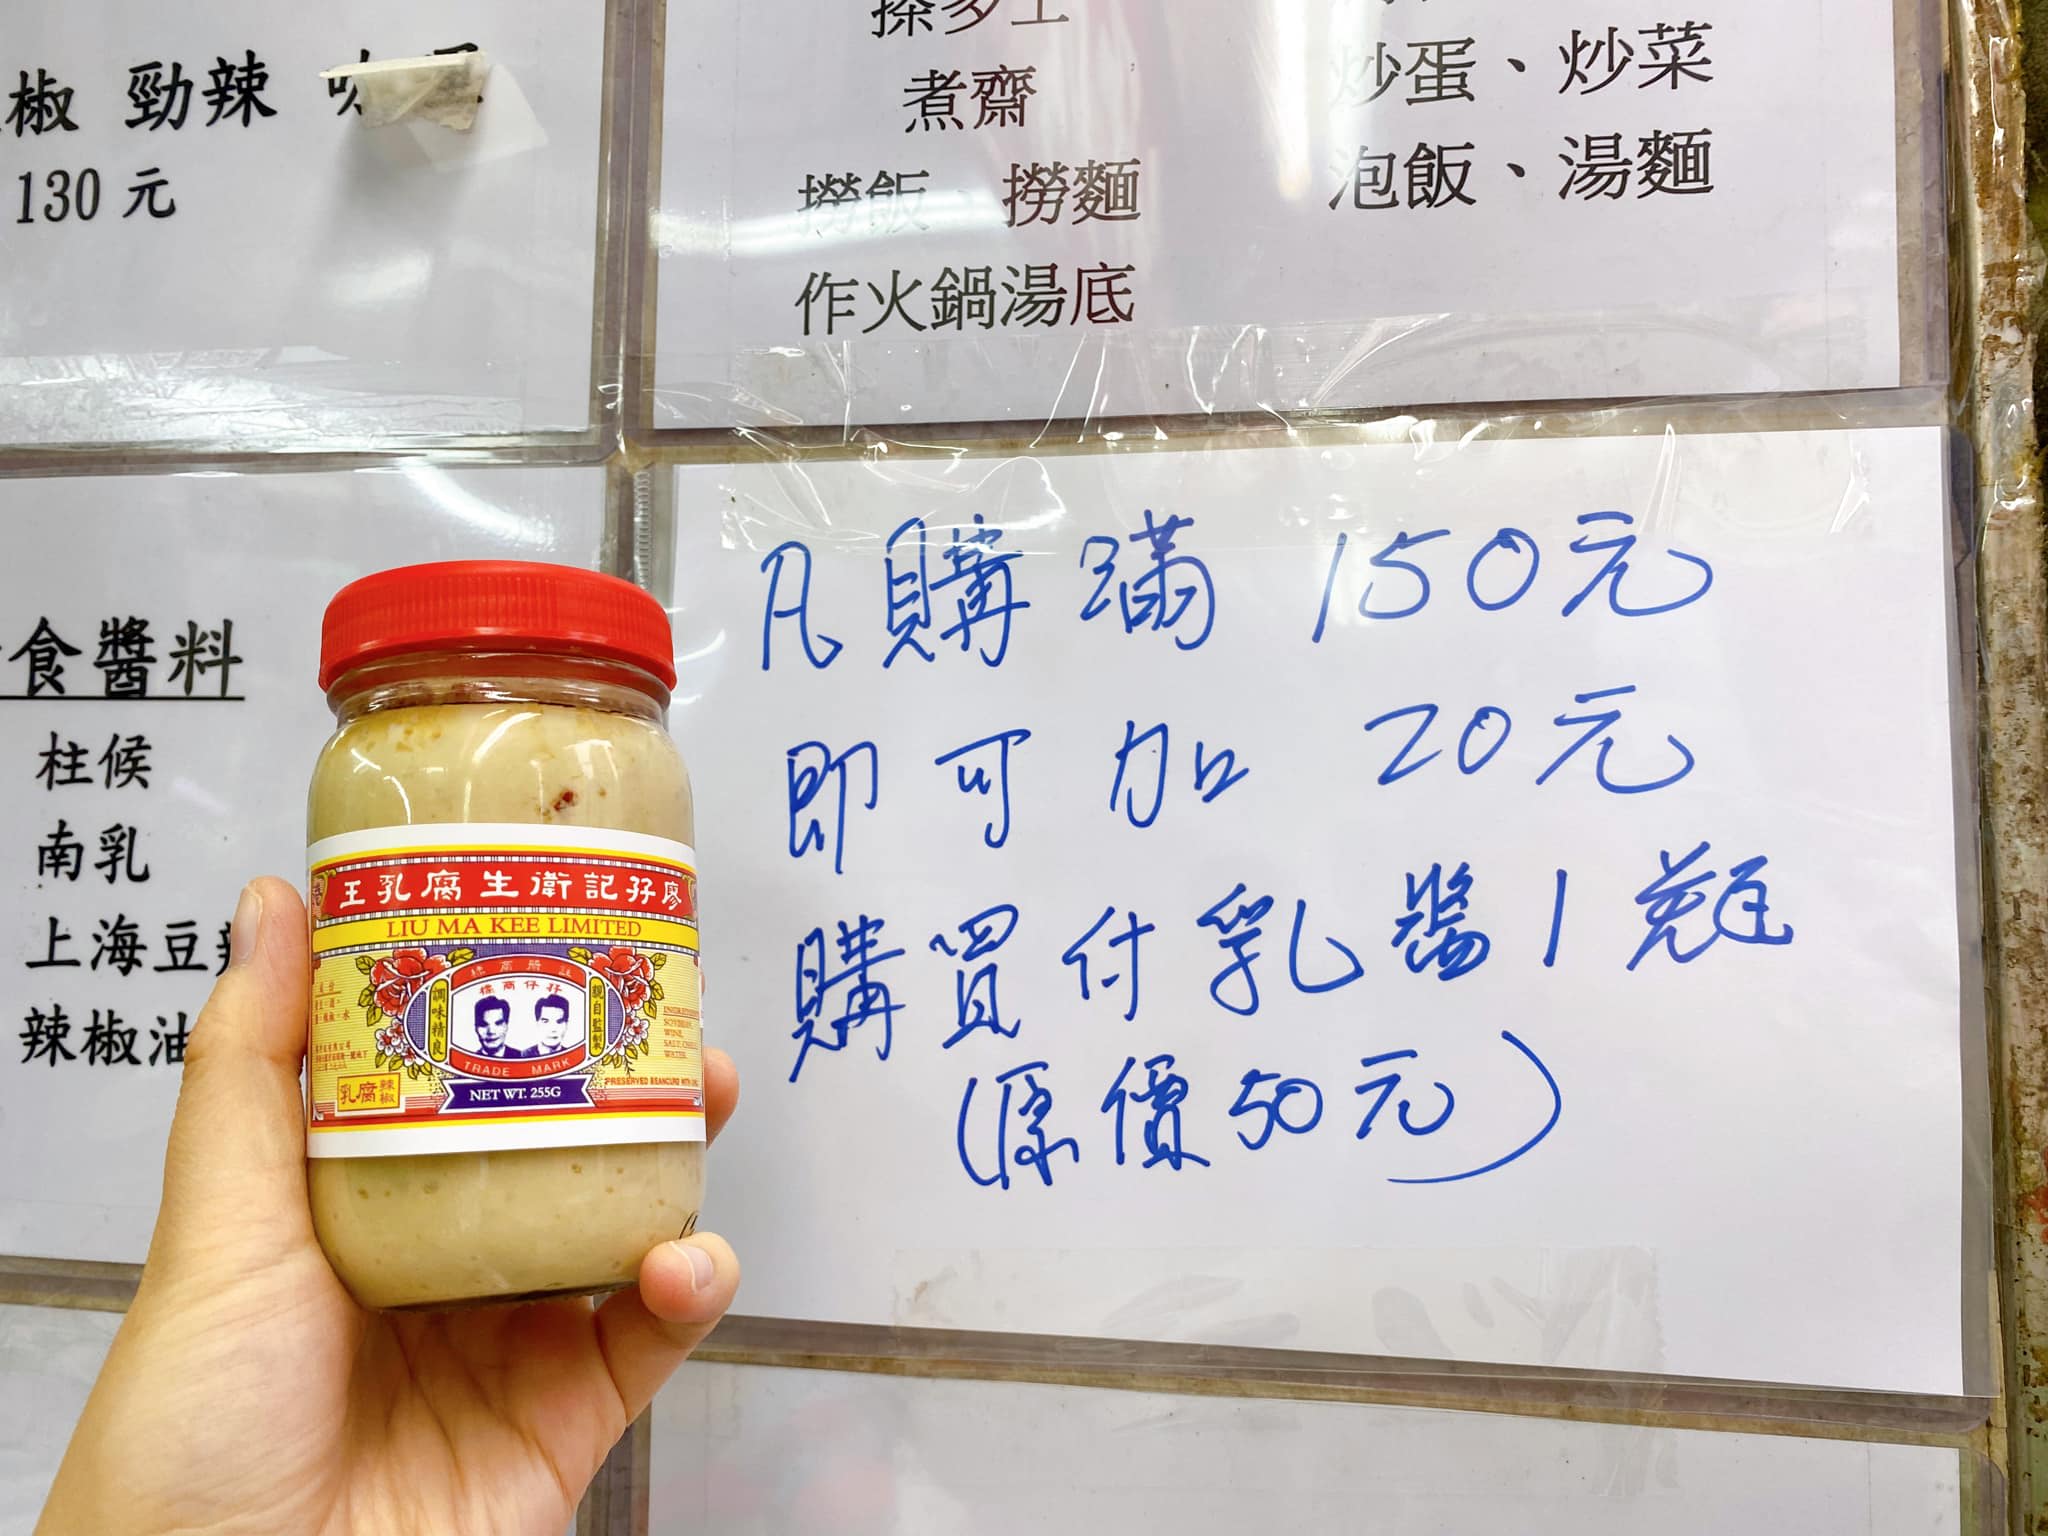 椒 勁辣
130 元
煮齋
撈飯、撈麵
作火鍋湯底
炒蛋、炒菜
泡飯、湯麵
食醬料
柱候
南乳
上海豆
辣椒油
凡購滿 150元
即可加 20元
購買付乳醬1瓶
(原價50元)
王乳腐生衛記孖廖
LIU MA KEE LIMITED
標商仔孖
調味精良
親自監製
TRADE MARK
NET WT. 255G
乳腐
辣椒